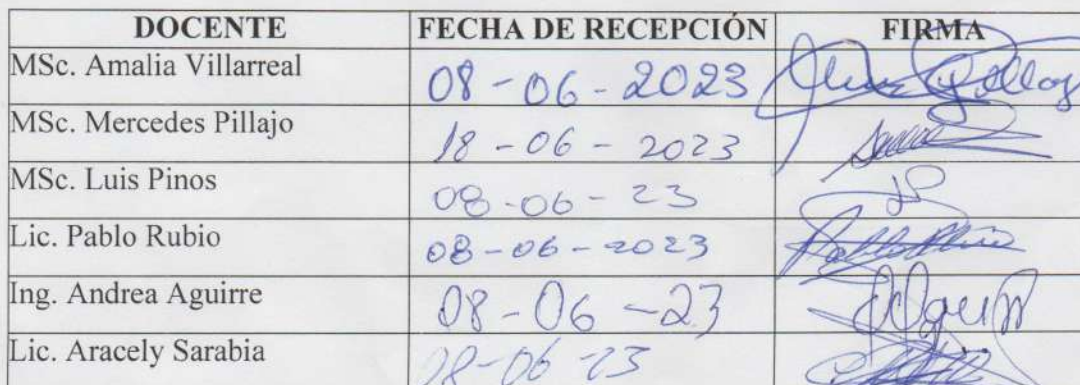 DOCENTE FECHA DE RECEPCIÓN FIRMA
MSc. Amalia Villarreal 08-06-2023
MSc. Mercedes Pillajo 18-06-2023
MSc. Luis Pinos 08-06-23
Lic. Pablo Rubio 08-06-2023
Ing. Andrea Aguirre 08-06-23
Lic. Aracely Sarabia 08-06-23